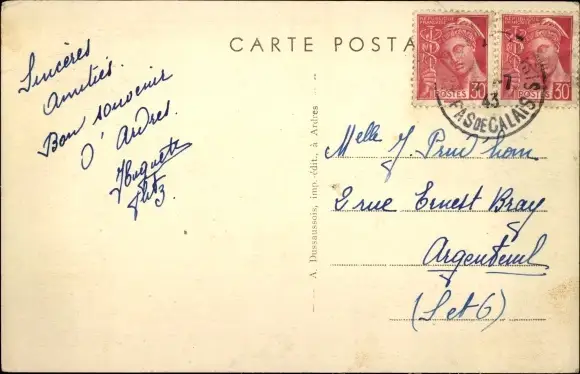 CARTE POSTA
RÉPUBLIQUE FRANÇAISE
POSTES 30
RÉPUBLIQUE FRANÇAISE
POSTES 30
7
43
PAS DE CALAIS
Sincères
Amitiés.
Bon souvenir
D'Ardres.
Huguette
A. Dussaussois, imp.-édit., à Ardres
Melle J. Prud'hom
2 rue Ernest Bray
Argenteuil
(S et O)